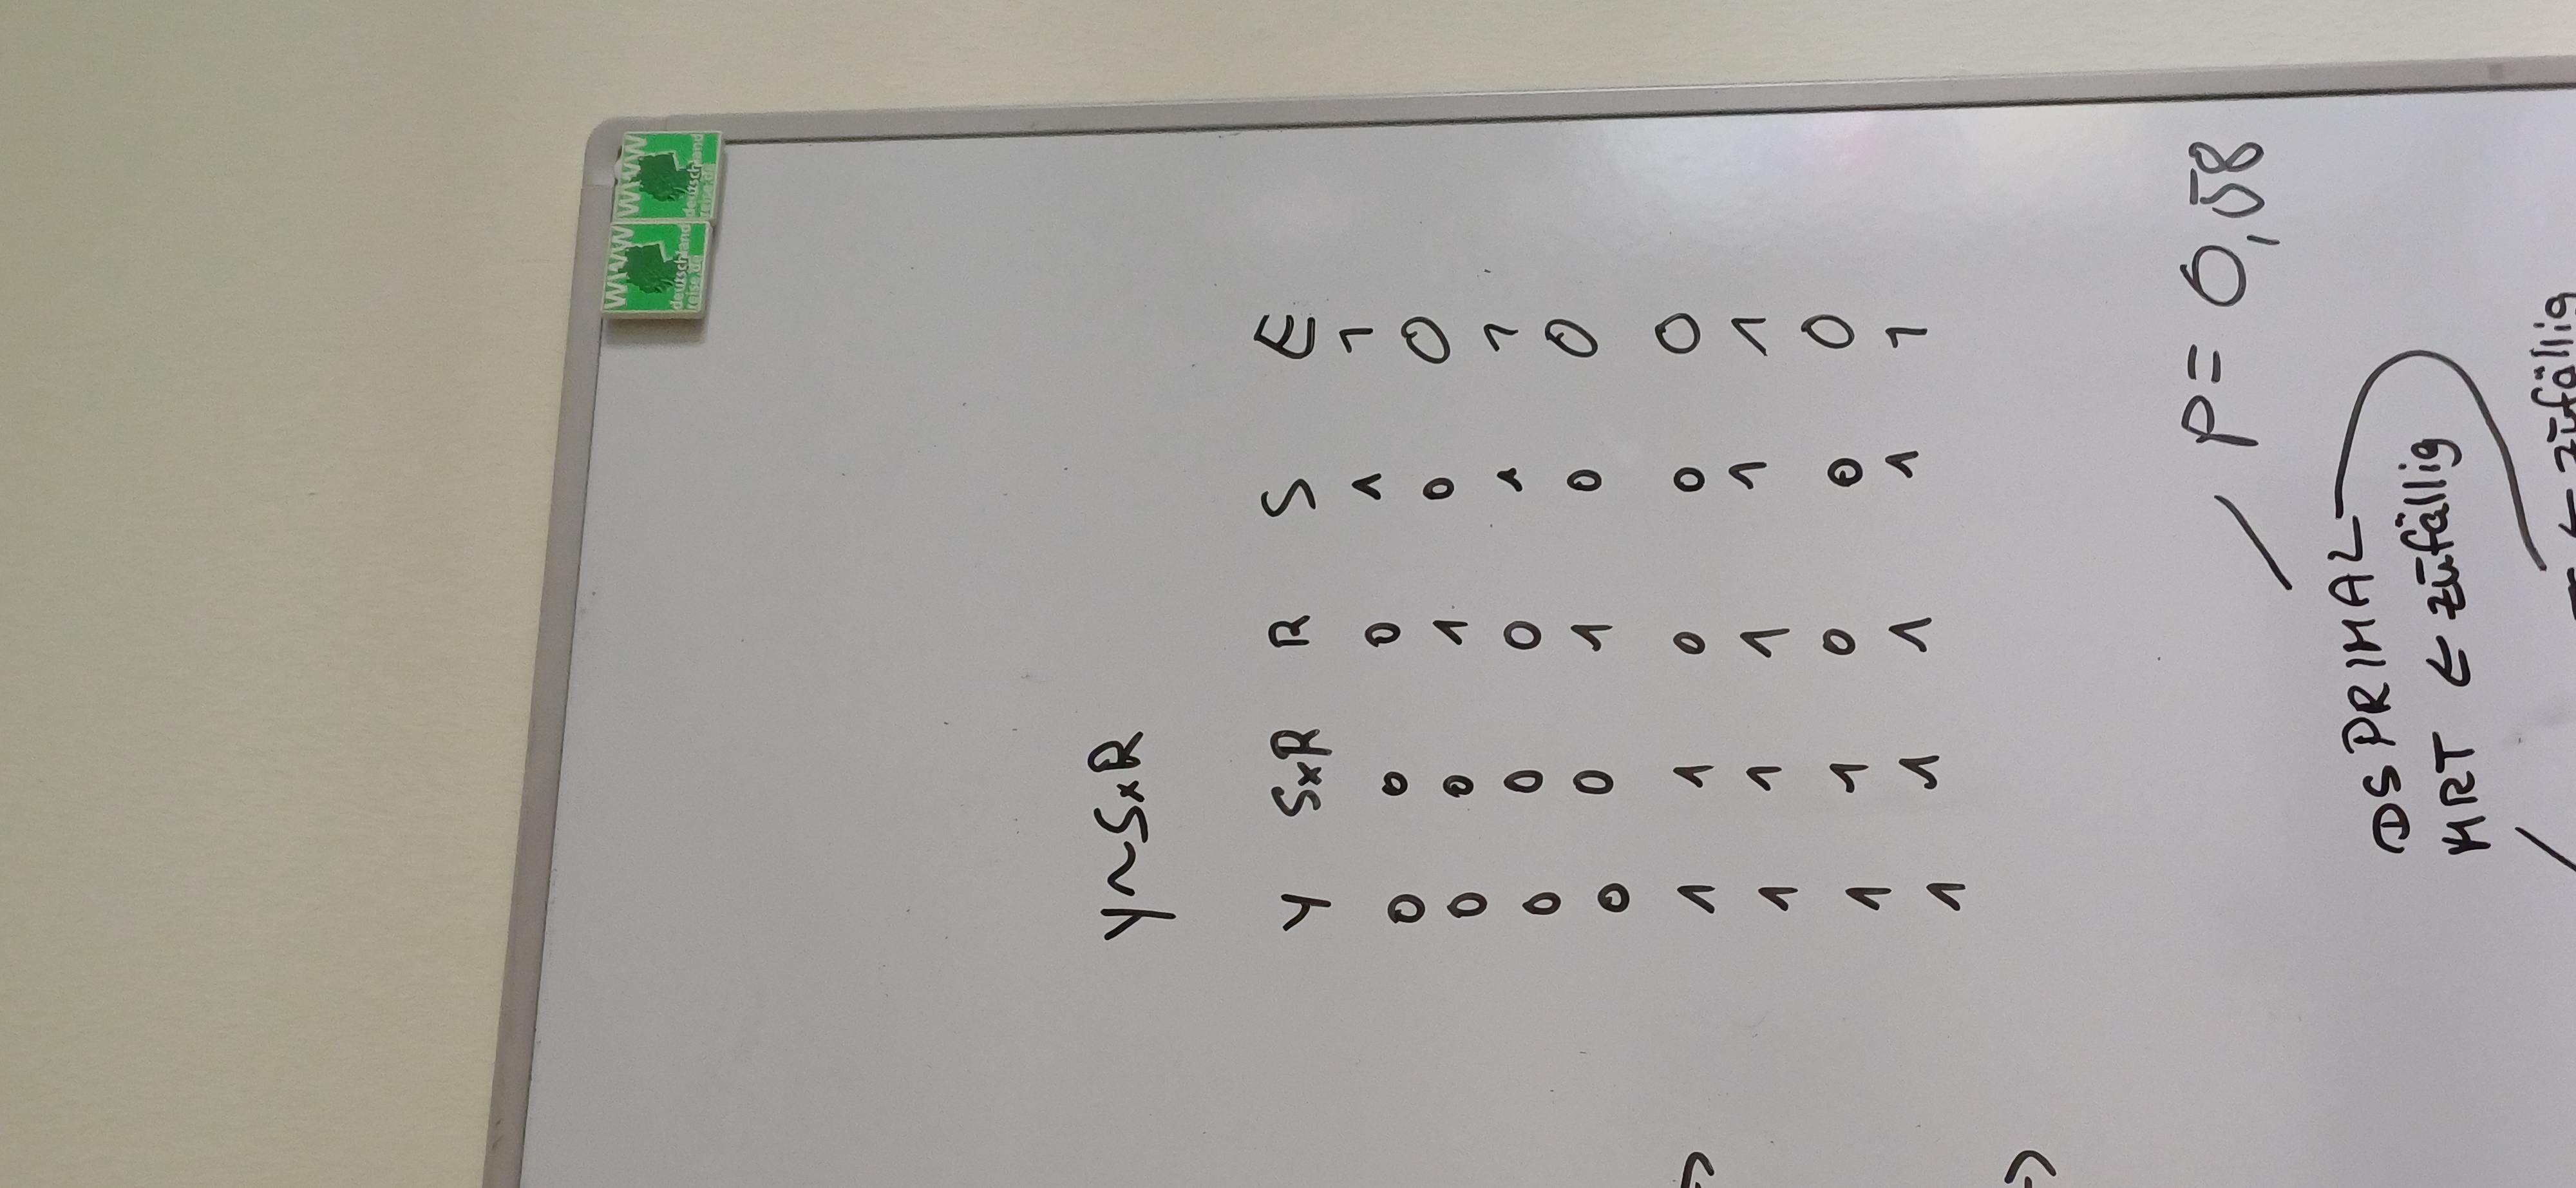 WWW WWW
deutschland deutschland
reise.de reise.de
Y~SxR
Y SxR R S E
0 0 0 1 1
0 0 1 0 0
0 0 0 1 1
0 0 1 0 0
1 1 0 0 0
1 1 1 1 1
1 1 0 0 0
1 1 1 1 1
P= 0,58
DSPRIMAL
MRT ← zufällig
← zufällig